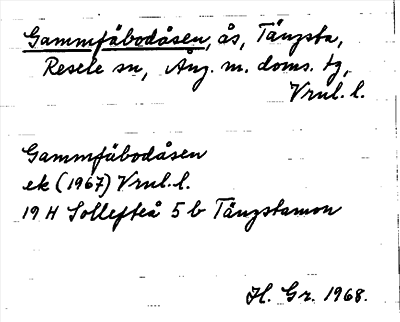 Gammfäbodåsen, ås, Tängsta,
Resele sn, Ång. m. doms. tg,
Vrul. l.
Gammfäbodåsen
ek (1967) Vrul. l.
19 H Sollefteå 5 b Tängstamon
H. Gr. 1968.